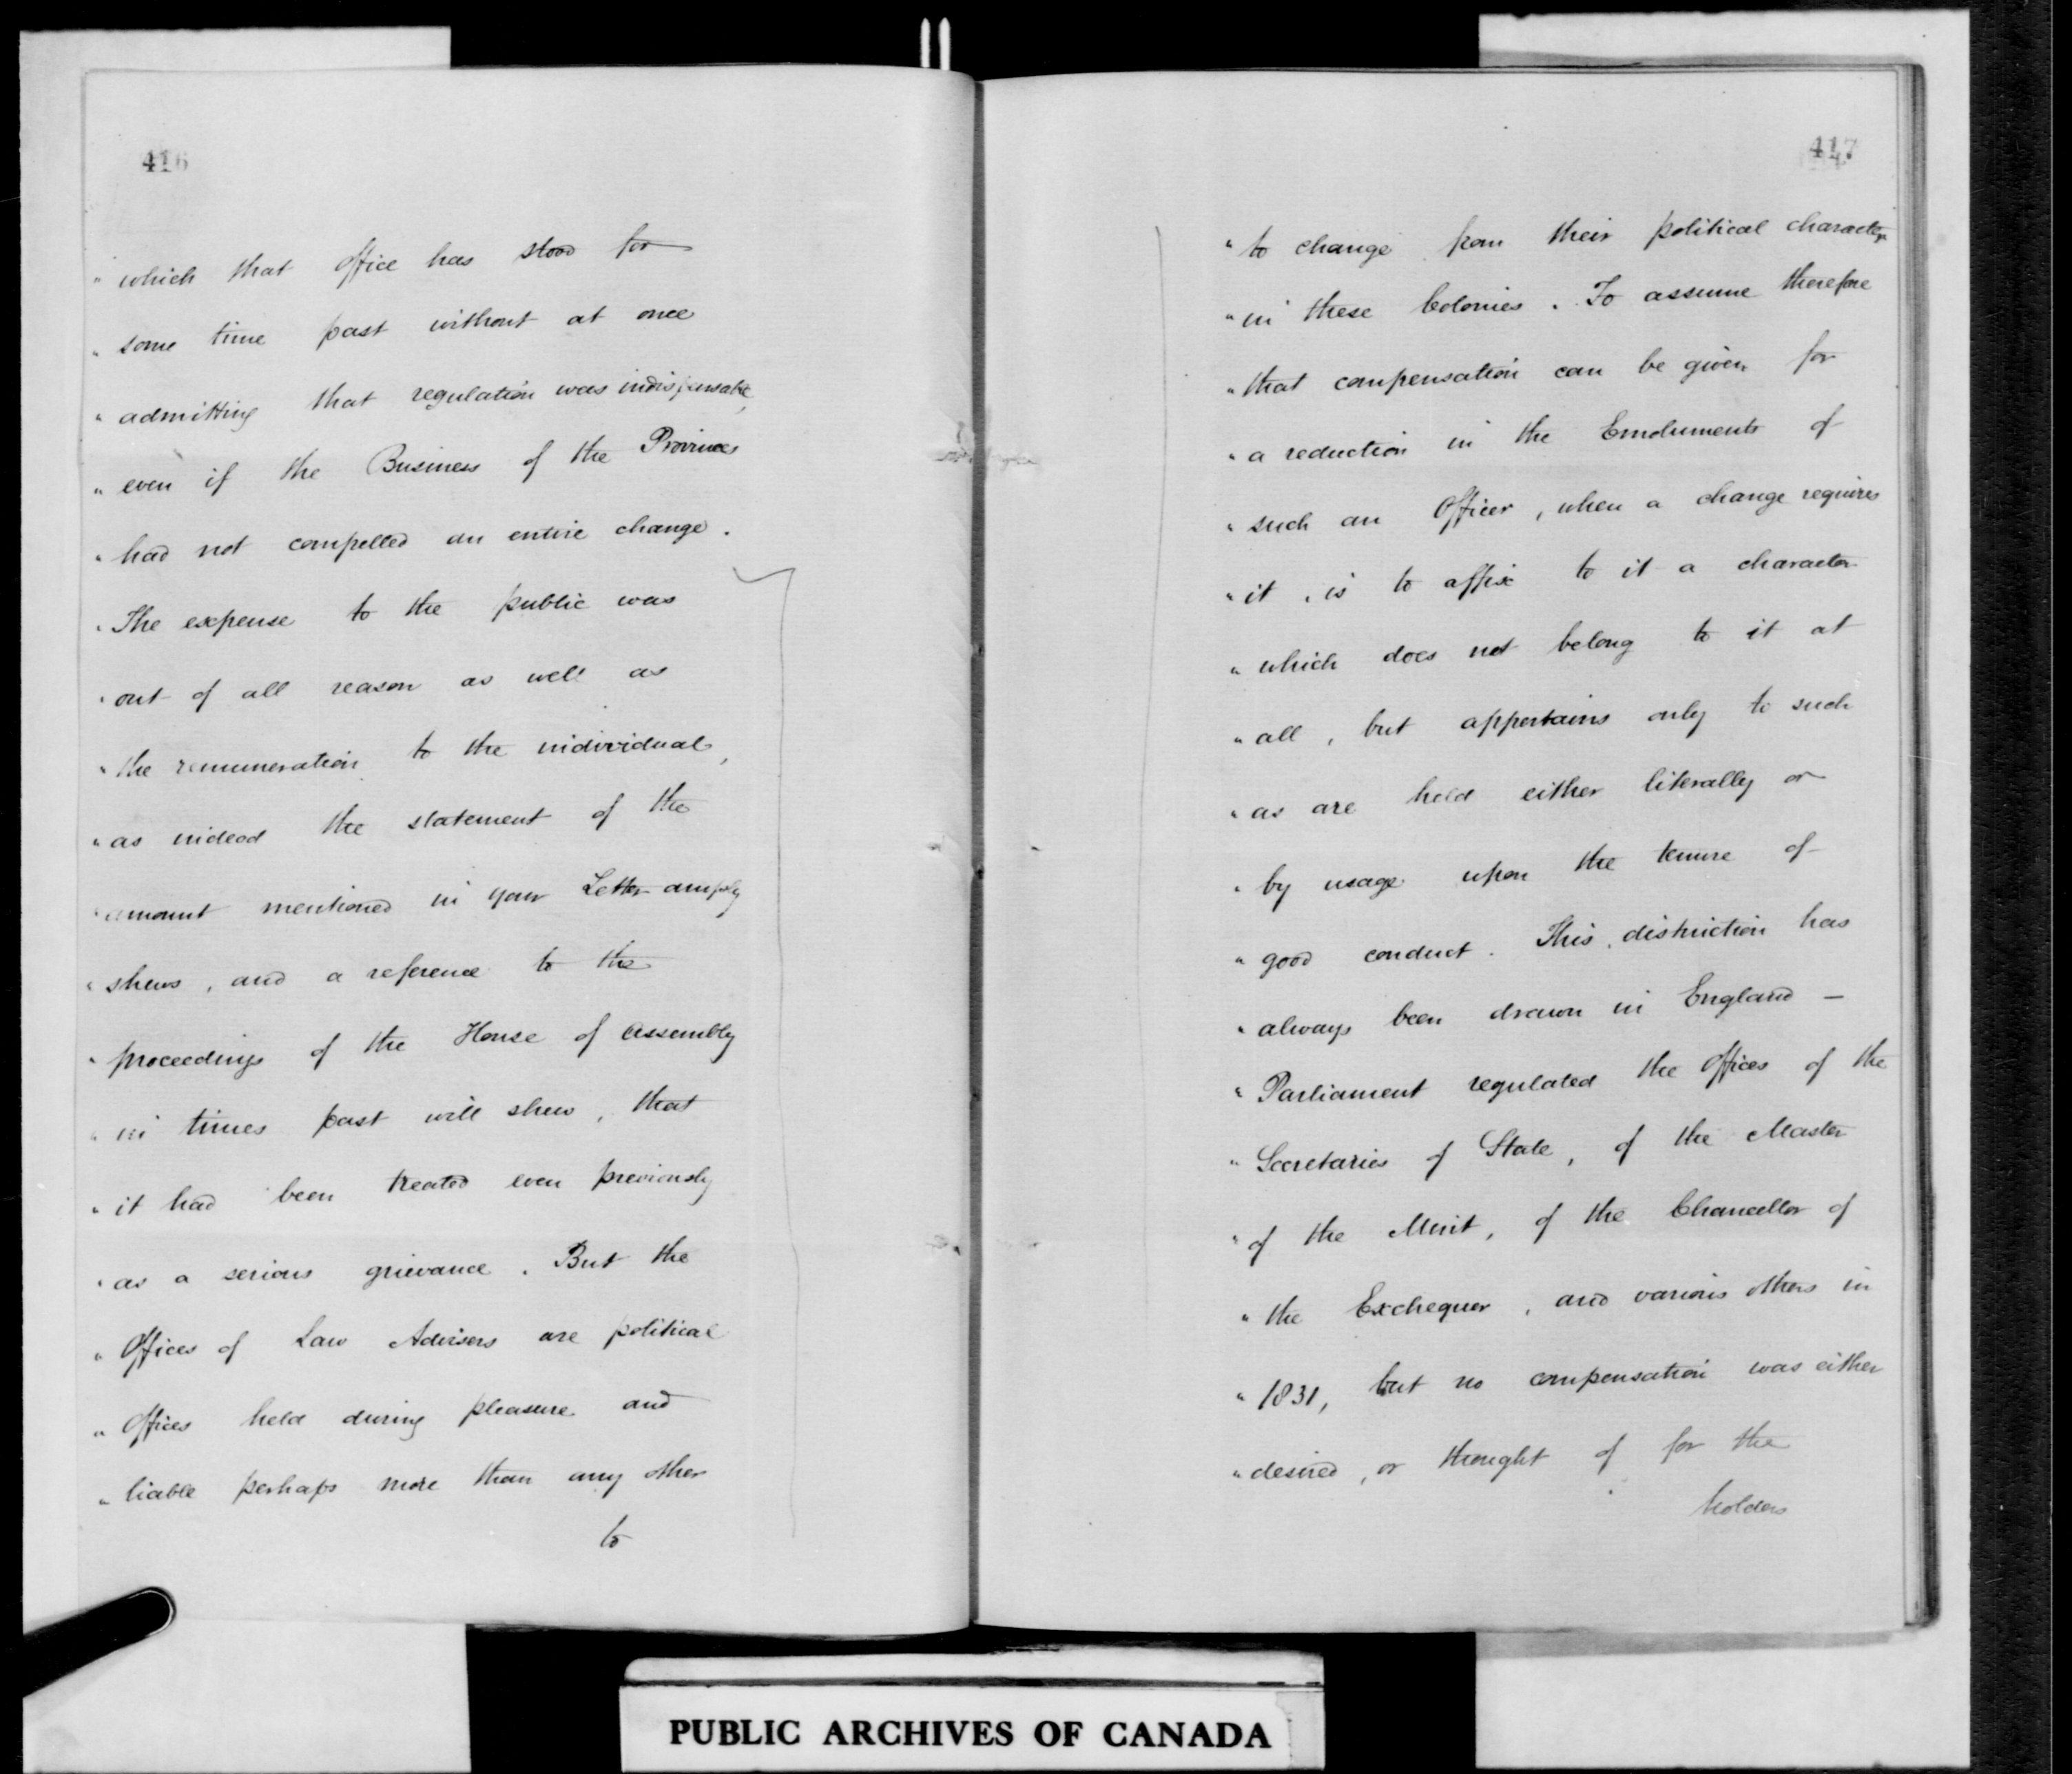 416
" which that Office has stood for
" some time past without at once
" admitting that regulation was indispensable,
" even if the Business of the Provinces
" had not compelled an entire change.
" The expense to the public was
" out of all reason as well as
" the remuneration to the individual,
" as indeed the statement of the
" amount mentioned in your Letter amply
" shews, and a reference to the
" proceedings of the House of Assembly
" in times past will shew, that
" it had been treated even previously
" as a serious grievance. But the
" Offices of Law Advisers are political
" Offices held during pleasure and
" liable perhaps more than any other
to
417
" to change from their political character
" in these Colonies. To assume therefore
" that compensation can be given for
" a reduction in the Emoluments of
" such an Officer, when a change requires
" it, is to affix to it a character
" which does not belong to it at
" all, but appertains only to such
" as are held either literally or
" by usage upon the tenure of
" good conduct. This distinction has
" always been drawn in England —
" Parliament regulated the Offices of the
" Secretaries of State, of the Master
" of the Mint, of the Chancellor of
" the Exchequer, and various others in
" 1831, but no compensation was either
" desired, or thought of for the
holders
PUBLIC ARCHIVES OF CANADA